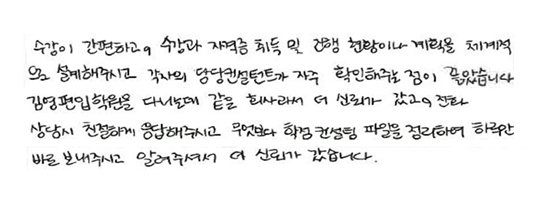 수강이 간편하고, 수강과 자격증 취득 및 진행 현황이나 계획을 체계적
으로 설계해주시고 각자의 담당컨설턴트가 자주 확인해주는 점이 좋았습니다
김영편입학원을 다니는데 같은 회사라서 더 신뢰가 갔고, 전화
상담시 친절하게 응답해주시고 무엇보다 학점 컨설팅 파일을 정리하여 하루만
바로 보내주시고 알려주셔서 더 신뢰가 갔습니다.